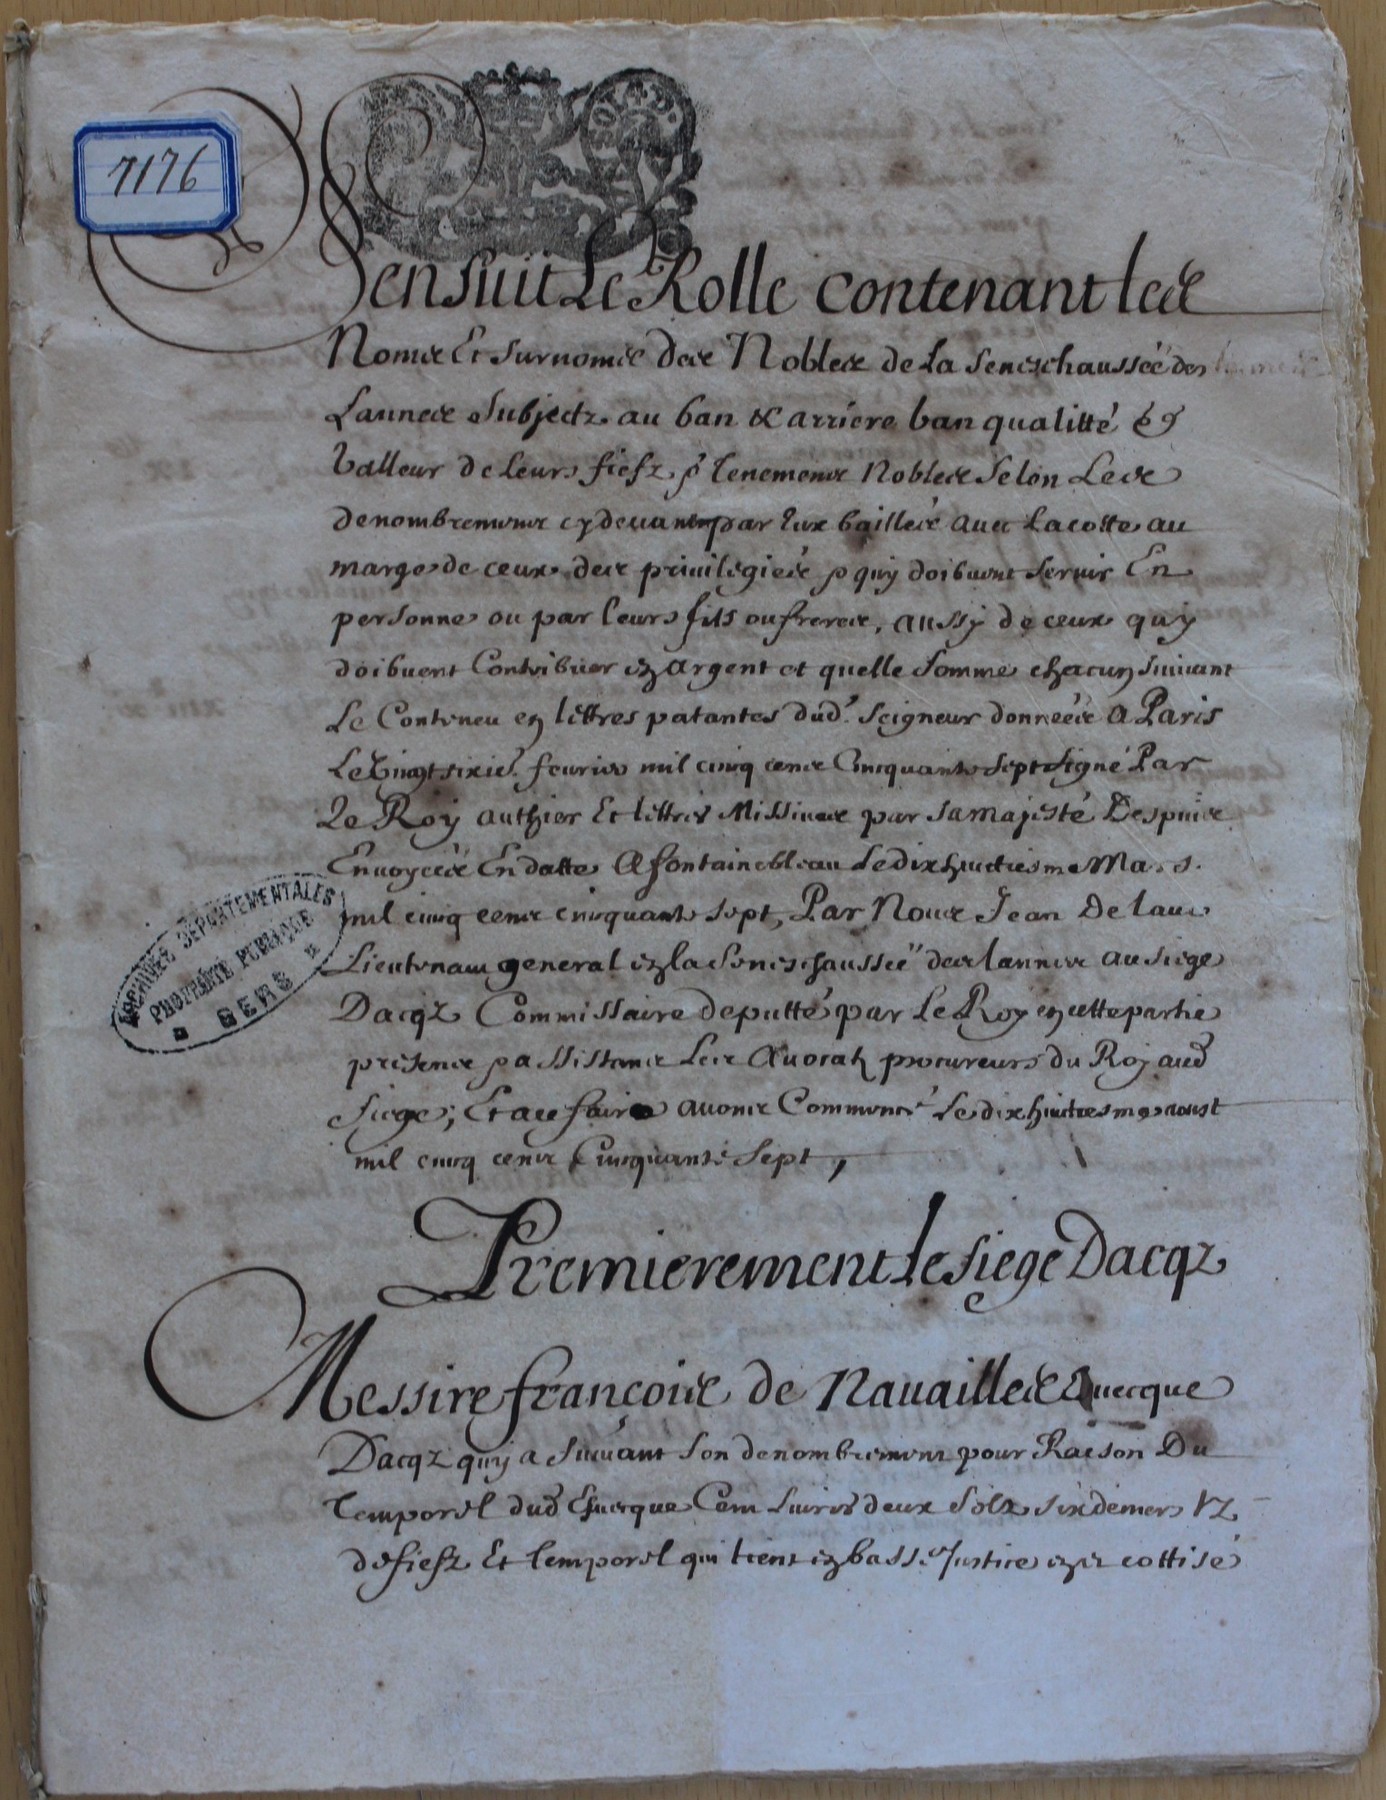 7176
Sensuit Le Rolle contenant les
Noms Et surnoms des Nobles de La Seneschaussée des
Lannes Subjectz au ban & arriere ban qualitté &
Valleur de Leurs fiefz & Tenemens Nobles Selon Les
denombremens cy devant par Eux baillés avec La cotte au
marge de ceux des privilegiés & quy doibvent servir En
personne ou par leurs fils ou freres, aussy de ceux quy
doibvent Contribuer en argent et quelle somme chacun suivant
Le Contenu en lettres patantes dud. Seigneur données A Paris
Le Vingt sixie. fevrier mil cinq cens Cinquante Sept Signé Par
Le Roy authier Et lettres Missives par Sa Majesté Despuis
Envoyées En datte A fontainebleau Le dix huictiesme Mars
mil cinq cens cinquante sept, Par Nous Jean De Lau
Lieutenant general en la Seneschaussée des lannes au siege
Dacqz Commissaire deputté par Le Roy en cette partie
presens & assistans Les Avocatz procureurs du Roy aud
Siege; Et a ce faire avons Commencé Le dix huictiesme aoust
mil cinq cens Cinquante Sept,
Premierement Le Siege Dacqz
Messire françois de Navailles Evecque
Dacqz quy a Suivant Son denombrement pour Raison Du
Temporel dud Evecque Cent Livres deux Solz six deniers tz
de fiefz Et temporel qui tient en basse Justice est cottisé
ARCHIVES DEPARTEMENTALES
PROPRIÉTÉ PUBLIQUE
GERS